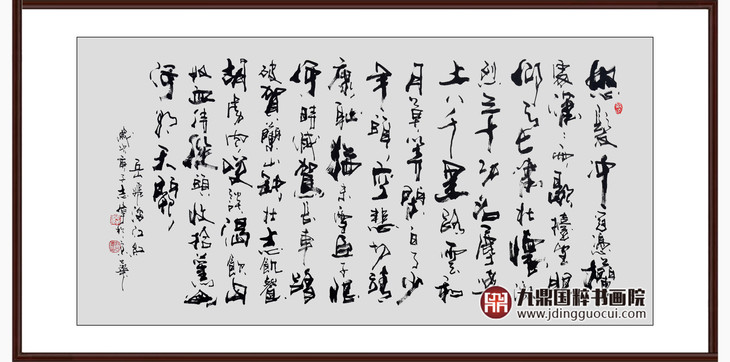 怒髮冲冠憑欄
處瀟〻雨歇擡望眼
仰天長嘯壯懷激
烈三十功名塵與
土八千里路雲和
月莫等閒白了少
年頭空悲切靖
康耻猶未雪臣子恨
何時滅駕長車踏
破賀蘭山缺壯志飢餐
胡虜肉笑談渴飲匈
奴血待從頭收拾舊山
河朝天闕
岳飛滿江紅
歲次庚子志
九鼎国粹书画院
www.jdingguocui.com